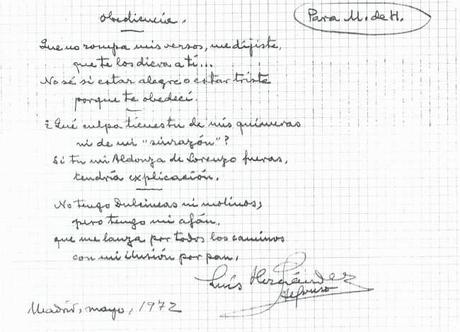 Obediencia.
Para M. de H.
Que no rompa mis versos, me dijiste,
que te los diera a ti...
No sé si estar alegre o estar triste
porque te obedecí.
¿Qué culpa tienes tu de mis quimeras
ni de mi "sinrazón"?
Si tu mi Aldonza de Lorenzo fueras,
tendría explicación.
No tengo Dulcineas ni molinos;
pero tengo mi afán,
que me lanza por todos los caminos
con mi ilusión por pan.
Luis Hernández
Alfonso
Madrid, mayo, 1972